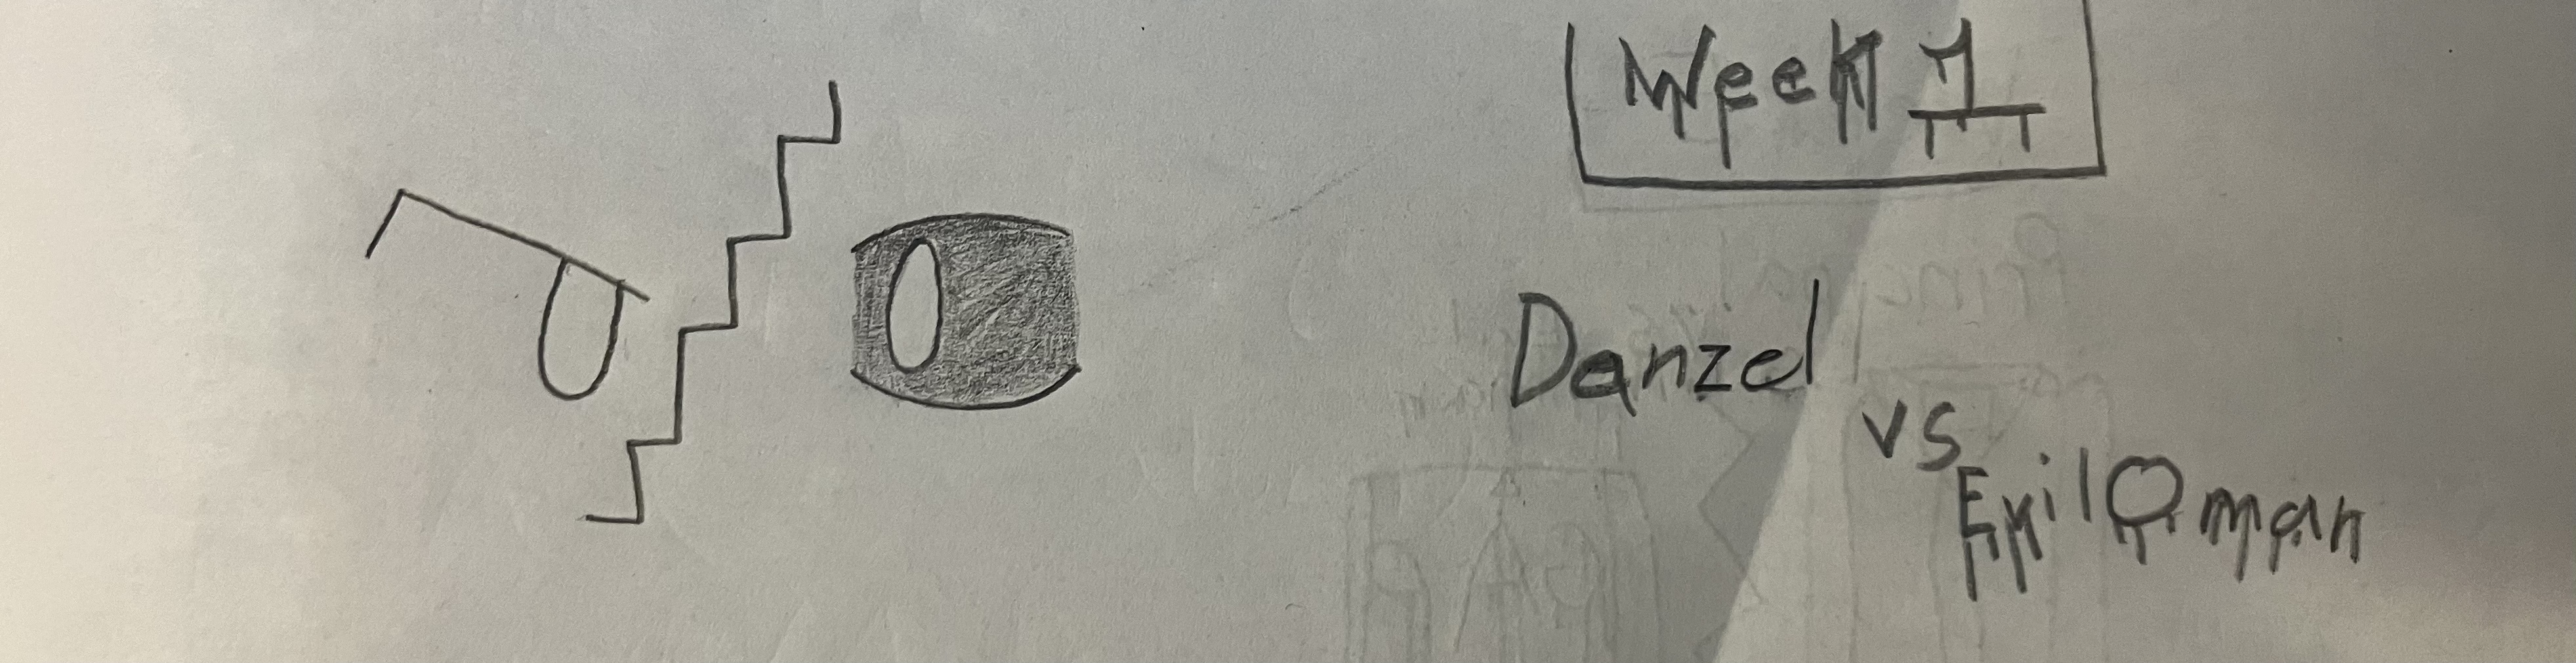 Week 1
Danzel
vs
Evil O man